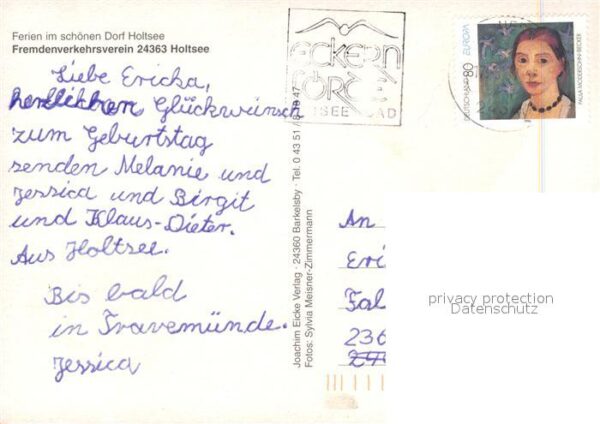 Ferien im schönen Dorf Holtsee
Fremdenverkehrsverein 24363 Holtsee
Liebe Ericka,
herzlichen Glückwunsch
zum Geburtstag
senden Melanie und
Jessica und Birgit
und Klaus-Dieter.
Aus Holtsee.
Bis bald
in Travemünde.
Jessica
Joachim Eicke Verlag · 24360 Barkelsby · Tel. 0 43 51 / 8 18 47
Fotos: Sylvia Meisner-Zimmermann
ECKERN
FÖRDE
OSTSEEBAD
DEUTSCHLAND 80 EUROPA
PAULA MODERSOHN-BECKER
An
Eri
Fal
236
privacy protection
Datenschutz